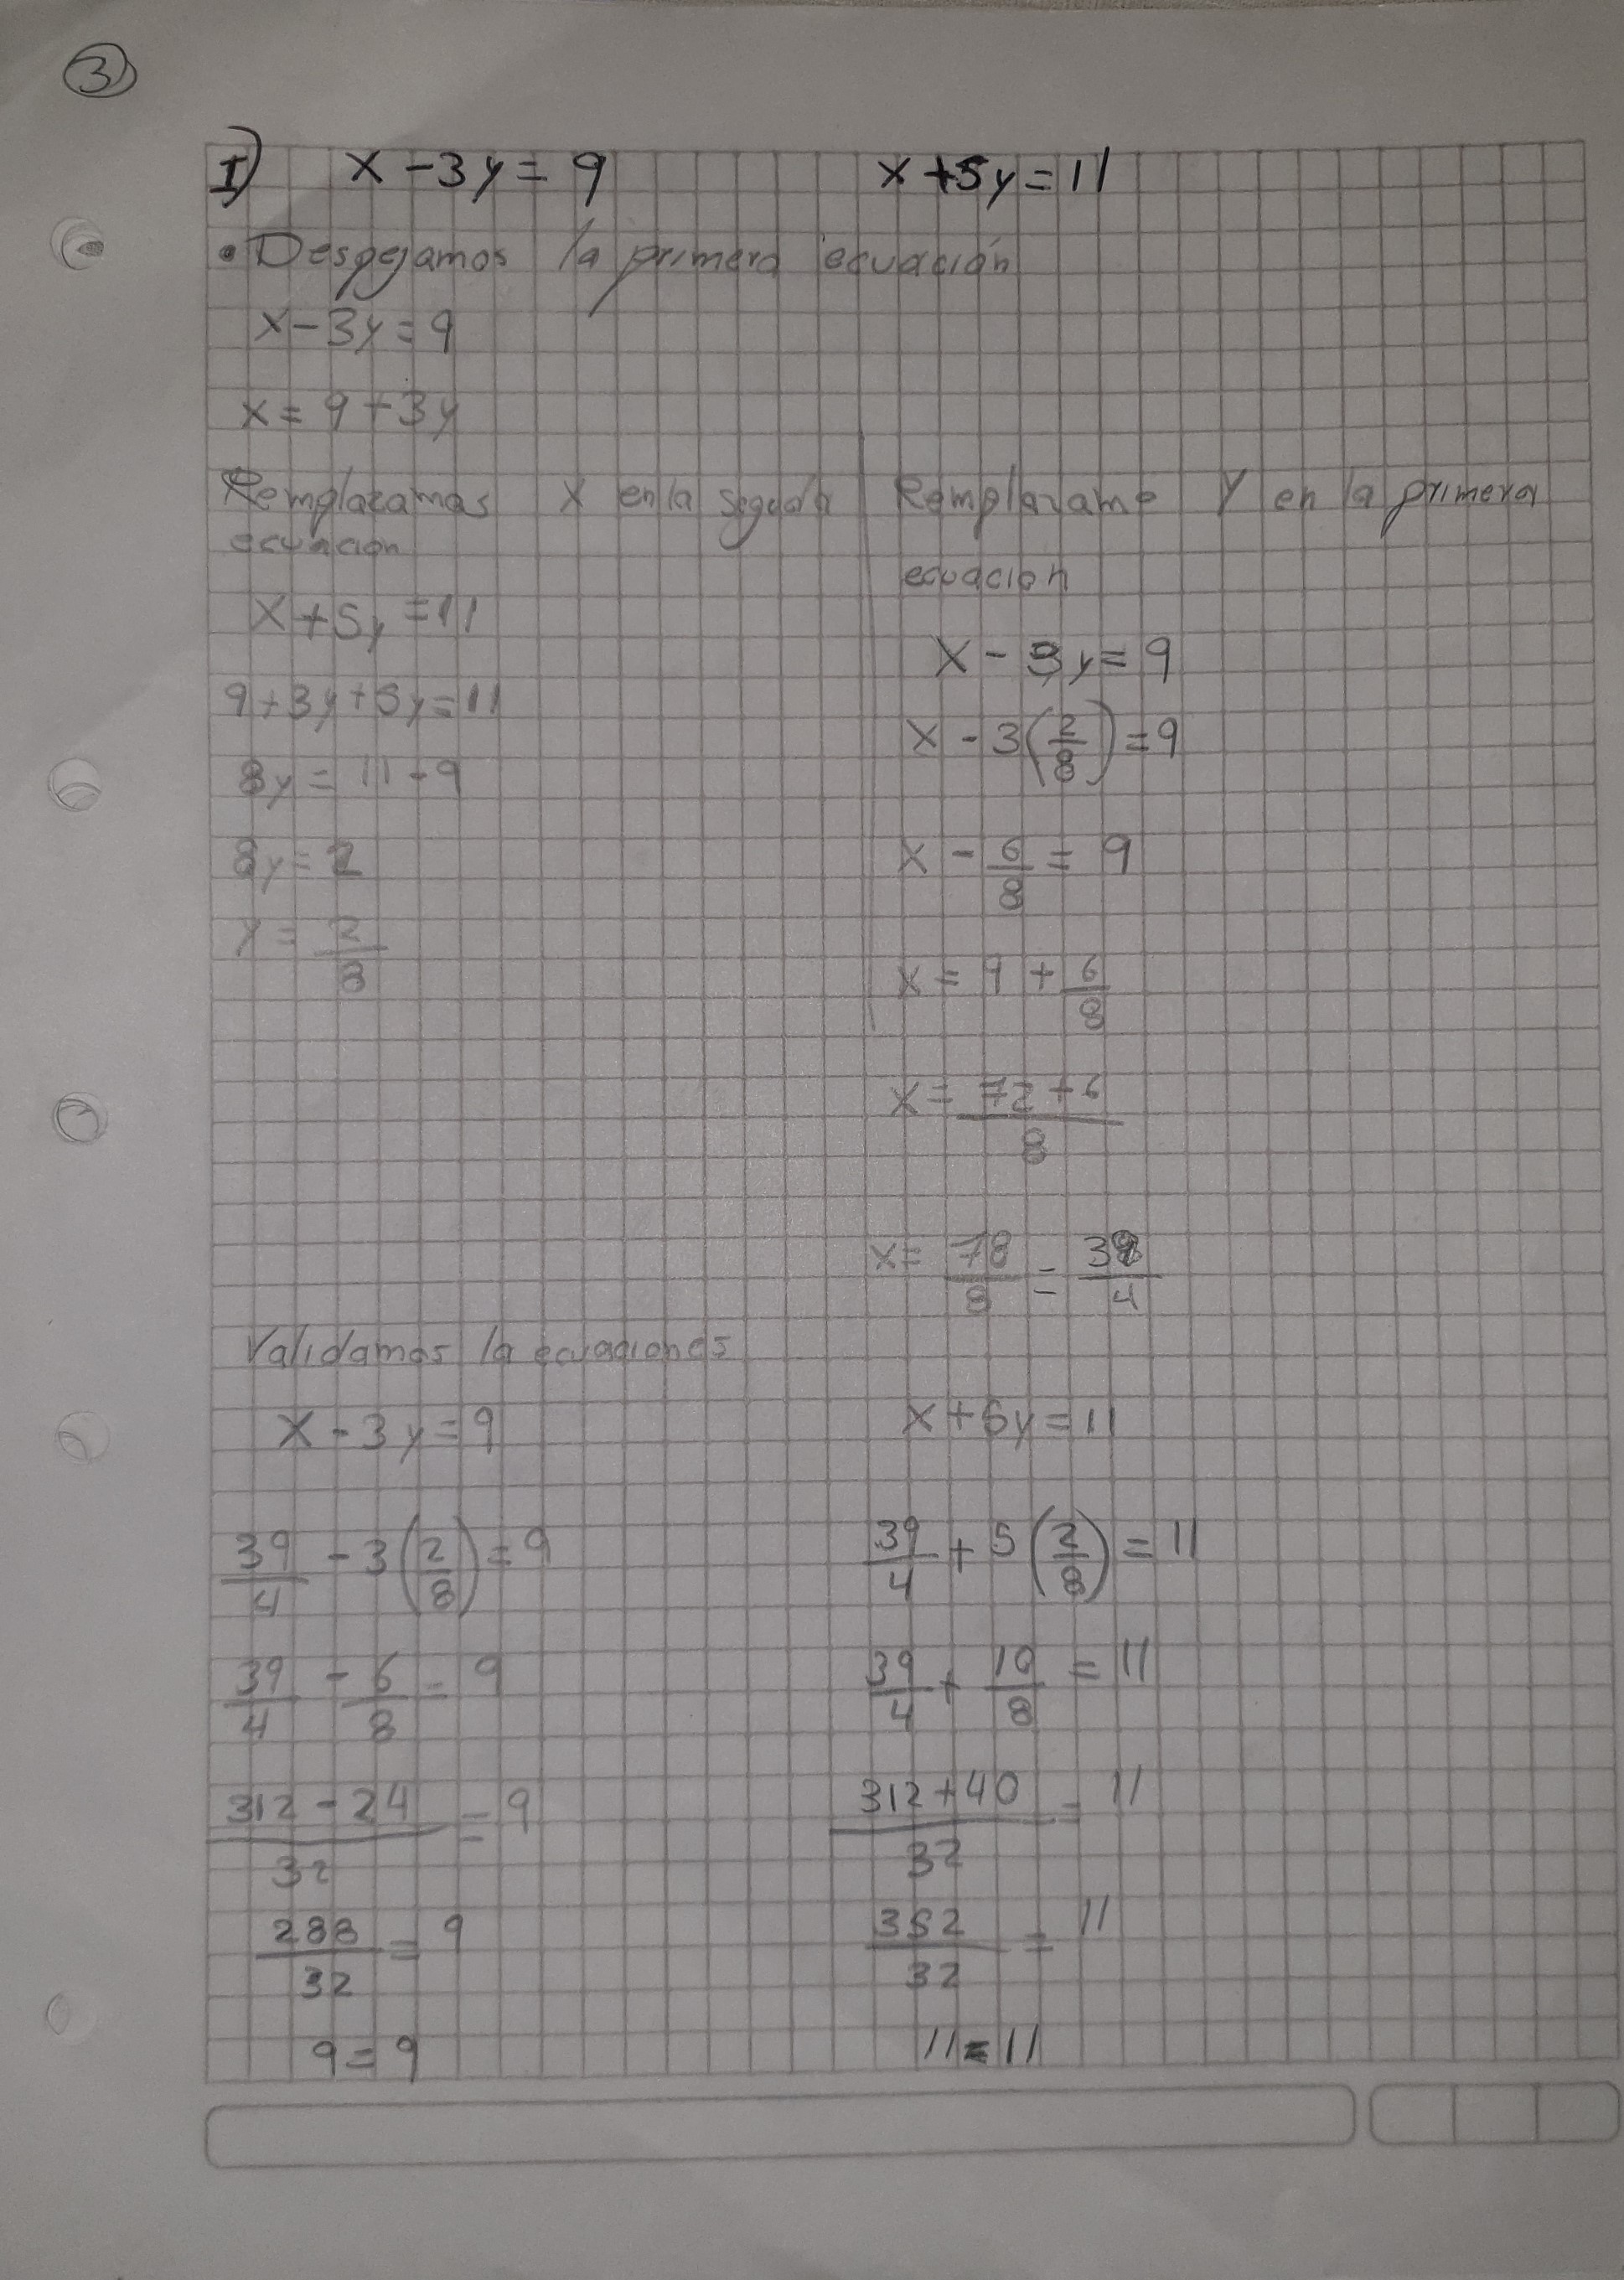 3
I) x - 3y = 9 x + 5y = 11
• Desgejamos la primera ecuación
x - 3y = 9
x = 9 + 3y
Remplazamas X en la segudn
ecuacion
x + 5y = 11
9 + 3y + 5y = 11
8y = 11 - 9
8y = 2
y = 2/8
Remplazame Y en la primera
ecuacion
x - 3y = 9
x - 3(2/8) = 9
x - 6/8 = 9
x = 9 + 6/8
x = 72 + 6/8
x = 78/8 = 39/4
Validamos la ecuaciones
x - 3y = 9
39/4 - 3(2/8) = 9
39/4 - 6/8 = 9
312 - 24/32 = 9
288/32 = 9
9 = 9
x + 5y = 11
39/4 + 5(2/8) = 11
39/4 + 10/8 = 11
312 + 40/32 = 11
352/32 = 11
11 = 11